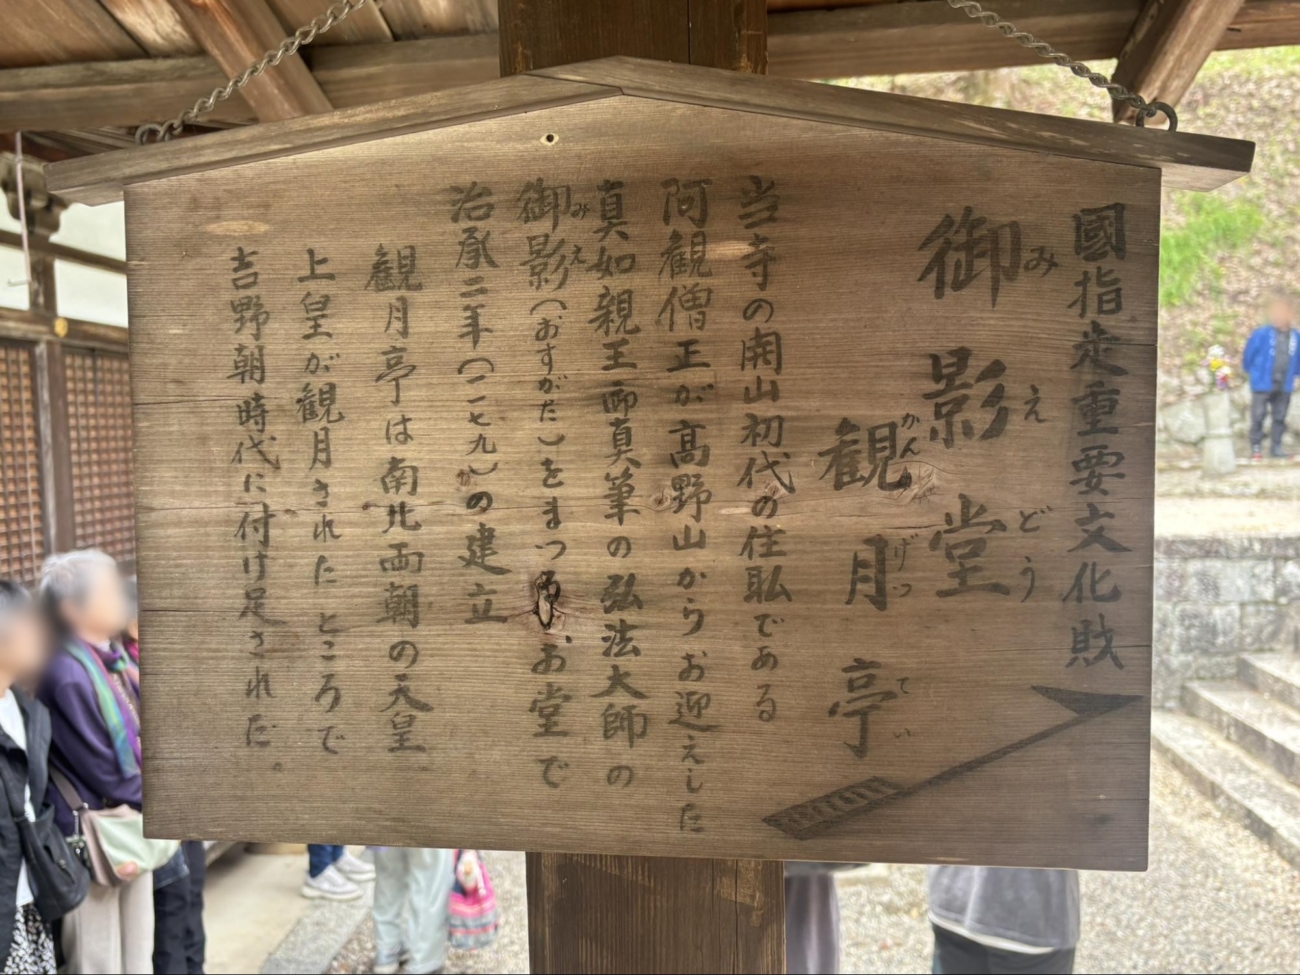 國指定重要文化財
御影堂
みえどう
観月亭
かんげつてい
当寺の開山初代の住職である
阿観僧正が高野山からお迎えした
真如親王御真筆の弘法大師の
御影(おすがた)をまつる、お堂で
みえ
治承二年(一一七九)の建立
観月亭は南北両朝の天皇
上皇が観月されたところで
吉野朝時代に付け足された。